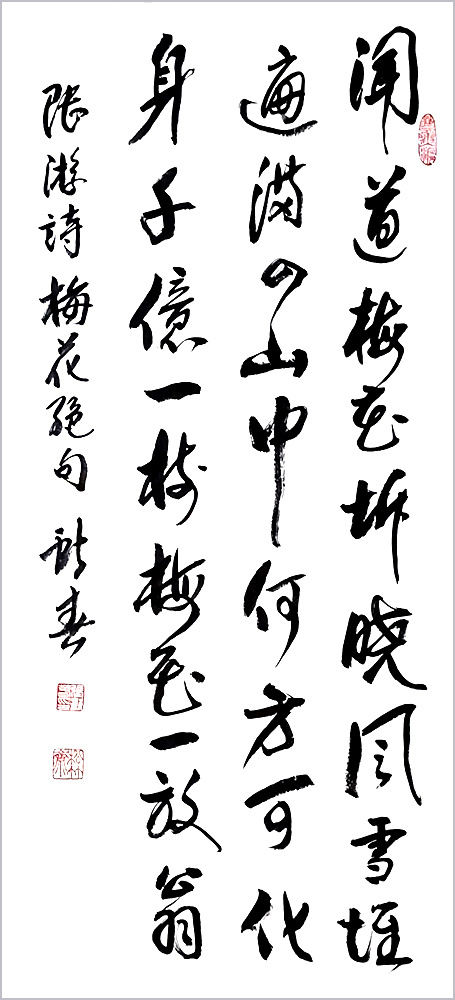 闻道梅花坼晓风雪堆
遍满四山中何方可化
身千億一树梅花一放翁
陸游詩梅花絶句 春